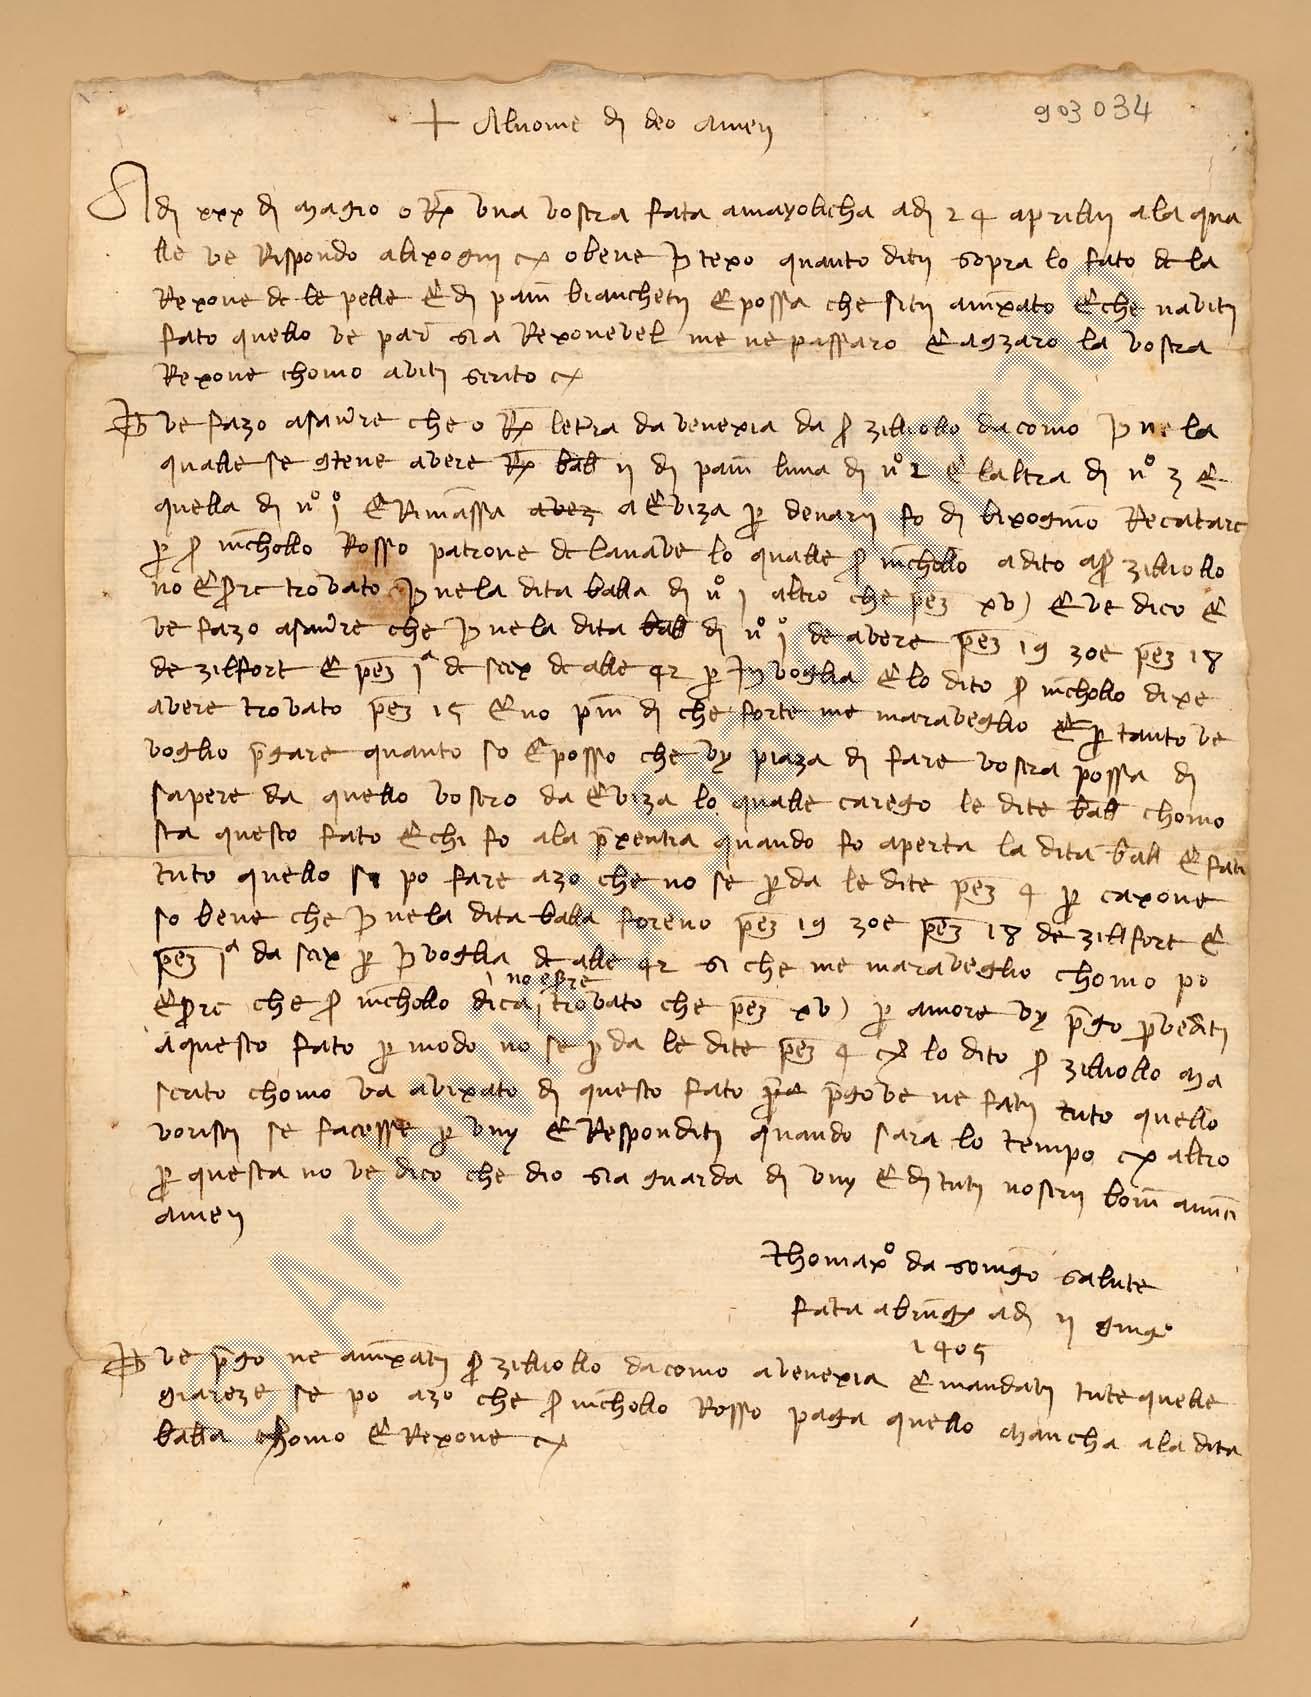 + Al nome di deo amen
903034
A di xxx di magio o Rx una vostra fata a mayolicha adi 24 aprilli a la qua
lle ve Rispondo al bixogni ex o bene intexo quanto diti sopra lo fato de la
Rexone de le pelle e di pani biancheti e possa che siti avixato e che naviti
fato quello ve pare sia Rexonevel me ne passaro e agzaro la vostra
Rexone chomo aviti scrito ex
ve fazo asavere che o Rx letera da venexia da ser zilliollo da como in ne la
qualle se gtene avere Rx ball ii di pani luna di n° 2 e laltra di n° 3 e
quella di n° j e Rimassa avez a Eviza per denarii fo di bixognio Recatare
per ser nicholo Rosso patrone de la nave lo qualle ser nicholo a dito a ser zilliollo
no esere trovato in ne la dita balla di n° j altro che pez xv) e ve dico e
ve fazo asavere che in ne la dita ball di n° j de avere pez 19 zoe pez 18
de zilfort e pez 1a de scix de alle 42 per invoglia e lo dito ser nicholo dixe
avere trovato pez 15 e no piu di che forte me maraveglio e per tanto ve
voglio pregare quanto so e posso che vy piaza di fare vostra possa di
sapere da quello vostro da Eviza lo qualle carego le dite ball chomo
sta questo fato e chi fo a la prexentia quando fo aperta la dita ball e fati
tuto quello se po fare azo che no se perda le dite pez 4 per caxone
so bene che in ne la dita balla foreno pez 19 zoe pez 18 de zilfort e
pez 1a da scix per invoglia de alle 42 si che me maraveglio chomo po
esere che ser nicholo dica no esere trovato che pez xv) per amore vy prego provediti
a questo fato per modo no se perda le dite pez 4 ex lo dito ser zilliollo ma
scrito chomo va avixato di questo fato pre pregove ne fati tuto quello
voristi se facesse per vuy e Responditi quando sara lo tempo ex altro
per questa no ve dico che dio sia guarda di vuy e di tuti nostri boni amici
amen
Thomaxo da somgo salute
fata a bruges adi ii giugo
1405
ve prego ne avixati ser zilliollo da como a venexia e mandati tute quelle
giareze se po azo che ser nicholo Rosso paga quello mancha a la dita
balla chomo e Rexone ex